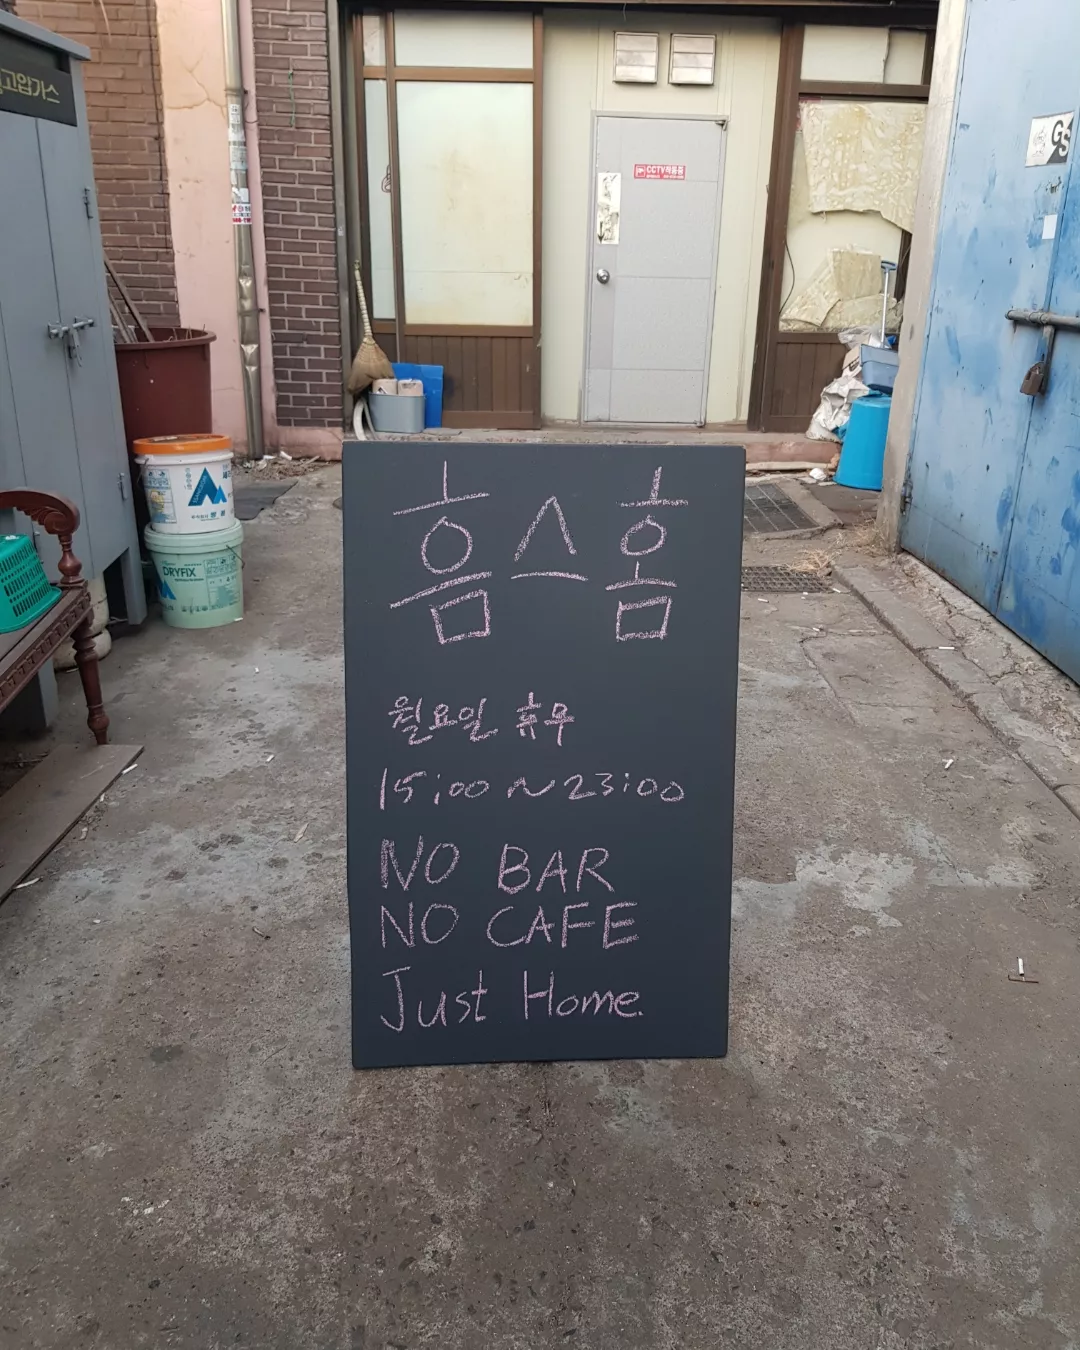 고압가스
CCTV작동중
GS
DRYFIX
홈스홈
월요일 휴무
15:00~23:00
NO BAR
NO CAFE
Just Home.